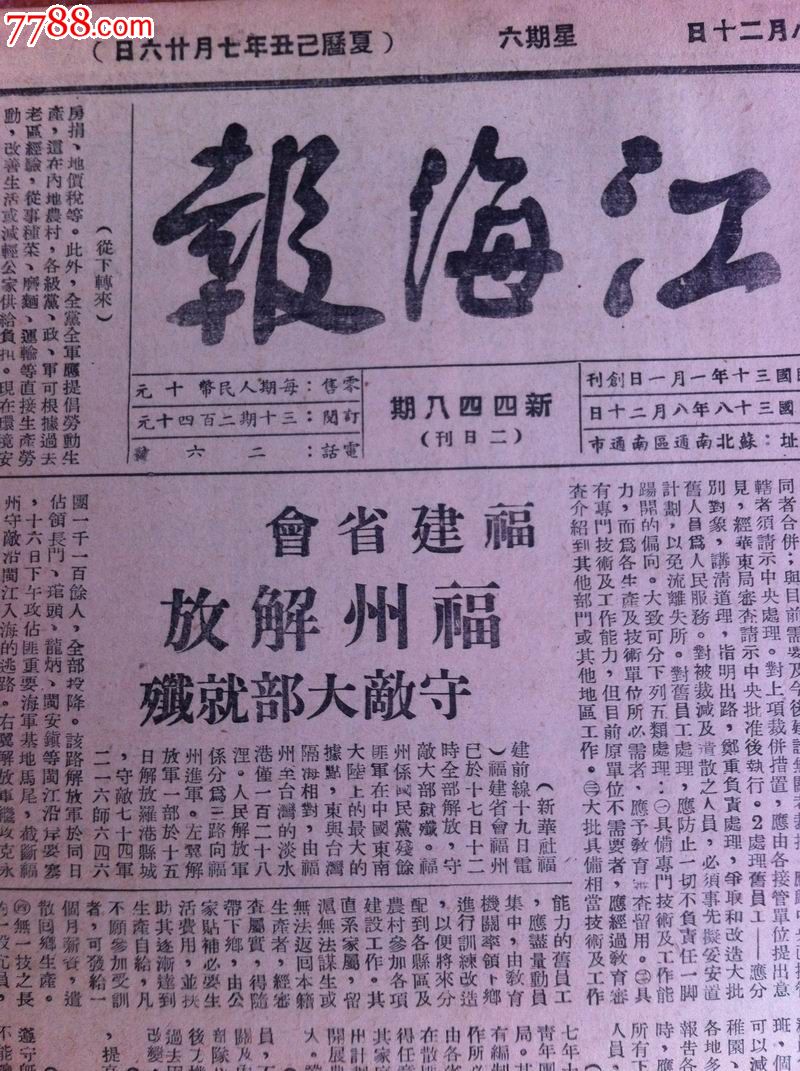 7788.com
月二十日
星期六
（夏曆己丑年七月廿六日）
江海報
國三十年一月一日創刊
國三十八年八月二十日
址：蘇北南通區南通市
新四四八期
（二日刊）
零售：每期人民幣十元
訂閱：三十期二百四十元
電話：二六號
（從下轉來）
房捐、地價稅等。此外，全黨全軍應提倡勞動生
產，還在內地農村，各級黨、政、軍可根據過去
老區經驗，從事種菜、磨麵、運輸等直接生產勞
動，改善生活或減輕公家供給負担。現在環境安
同者合併；與目前需要及今後建設無關者裁
轄者須請示中央處理。對上項裁併措置，應由各接管單位提出意
見，經華東局審查請示中央批准後執行。2處理舊員工——應分
別對象，講清道理，指明出路，鄭重負責處理，爭取和改造大批
舊人員爲人民服務。對被裁減及遣散之人員，必須事先擬妥安置
計劃，以免流離失所。對舊員工處理，應防止一切不負責任一脚
踢開的偏向。大致可分下列五類處理：㊀具備專門技術及工作能
力，而爲各生產及技術單位所必需者，應予教育審查留用。㊁具
有專門技術及工作能力，但目前原單位不需要者，應經過教育審
查介紹到其他部門或其他地區工作。㊂大批具備相當技術及工作
能力的舊員工
，應儘量動員
集中，由教育
機關率領下鄉
進行訓練改造
，以便將來分
配到各縣區及
農村參加各項
建設工作。其
直系家屬，留
滬無法謀生或
無法返回本籍
生產者，經審
查屬實，得隨
帶下鄉，由公
家貼補必要生
活費用，並扶
助其逐漸達到
生產自給，凡
不願參加受訓
者，可發給一
個月薪資，遣
散回鄉生產。
㊃無一技之長
福建省會
福州解放
守敵大部就殲
（新華社福
建前線十九日電
）福建省會福州
已於十七日十二
時全部解放，守
敵大部就殲。福
州係國民黨殘餘
匪軍在中國東南
大陸上的最大的
據點，東與台灣
隔海相對，由福
州至台灣的淡水
港僅一百二十八
浬。人民解放軍
係分爲三路向福
州進軍。左翼解
放軍一部於十五
日解放羅港縣城
，守敵七十四軍
二一六師六四六
團一千一百餘人，全部投降。該路解放軍於同日
佔領長門、琯頭、龍炳、閩安鎮等閩江沿岸要塞
，十六日下午攻佔匪重要海軍基地馬尾，截斷福
州守敵沿閩江入海的逃路。右翼解放軍